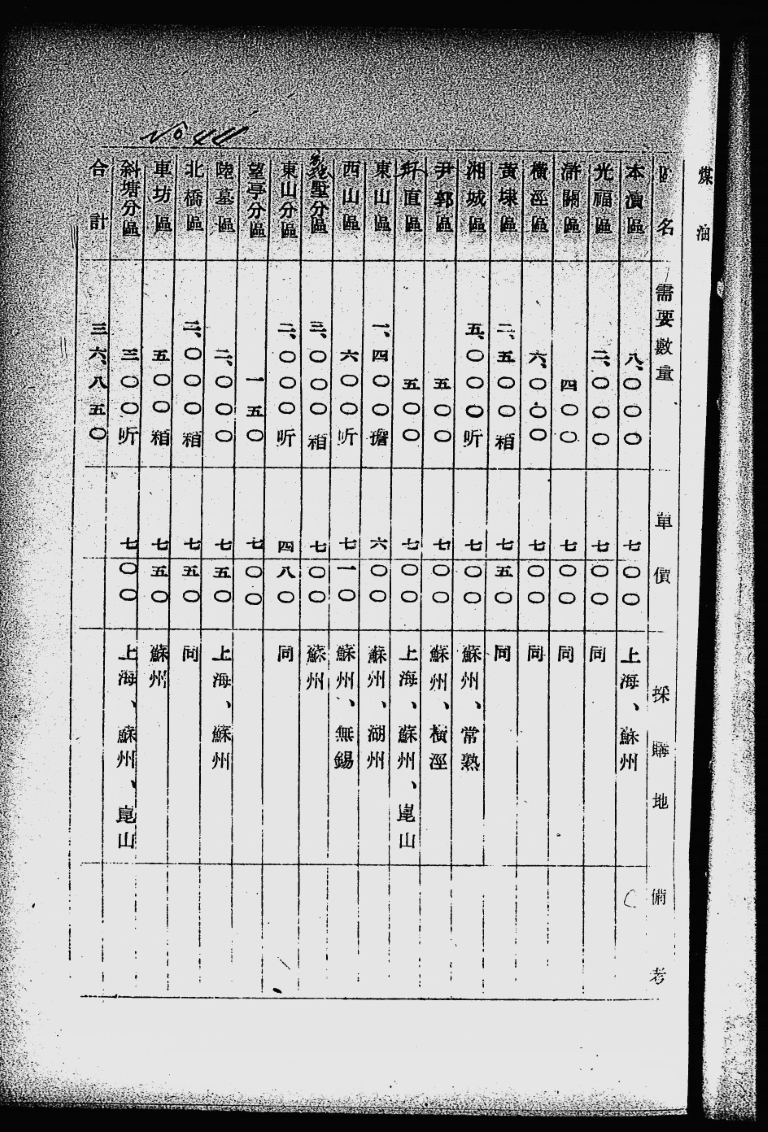 No 44
煤油
區名 需要數量 單價 採購地 備考
本瀆區 八、〇〇〇 七〇〇 上海、蘇州
光福區 二、〇〇〇 七〇〇 同
滸關區 四〇〇 七〇〇 同
橫涇區 六、〇〇〇 七〇〇 同
黃埭區 二、五〇〇箱 七五〇 同
湘城區 五、〇〇〇听 七〇〇 蘇州、常熟
尹郭區 五〇〇 七〇〇 蘇州、橫涇
直區 五〇〇 七〇〇 上海、蘇州、崑山
東山區 一、四〇〇擔 六〇〇 蘇州、湖州
西山區 六〇〇听 七一〇 蘇州、無錫
墅分區 三、〇〇〇箱 七〇〇 蘇州
東山分區 二、〇〇〇听 四八〇 同
望亭分區 一五〇 七〇〇
陸墓區 二、〇〇〇 七五〇 上海、蘇州
北橋區 二、〇〇〇箱 七五〇 同
車坊區 五〇〇箱 七五〇 蘇州
斜塘分區 三〇〇听 七〇〇 上海、蘇州、崑山
合計 三六、八五〇